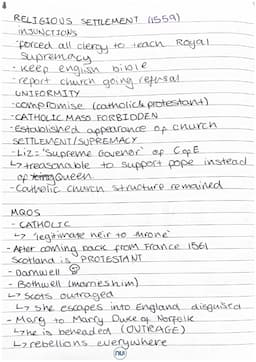 RELIGIOUS SETTLEMENT (1559)
INJUNCTIONS
-forced all clergy to teach Royal
Supremacy
- Keep english bible
- report church going refusal
UNIFORMITY
-compromise (catholic & protestant)
-CATHOLIC MASS FORBIDDEN
-Established appearance of church
SETTLEMENT/SUPREMACY
- Liz = 'Supreme Govenor' of CofE
↳ treasonable to support pope instead
of Queen
-Catholic church structure remained
MQOS
- CATHOLIC
↳ 'legitimate heir to throne'
- After coming back from France 1561
Scotland is PROTESTANT
- Darnwell
- Bothwell (marries him)
↳ Scots outraged
↳ she escapes into England disguised
- Marg to Marry Duke of Norfolk
↳ he is beheaded (OUTRAGE)
↳ rebellions everywhere
nu